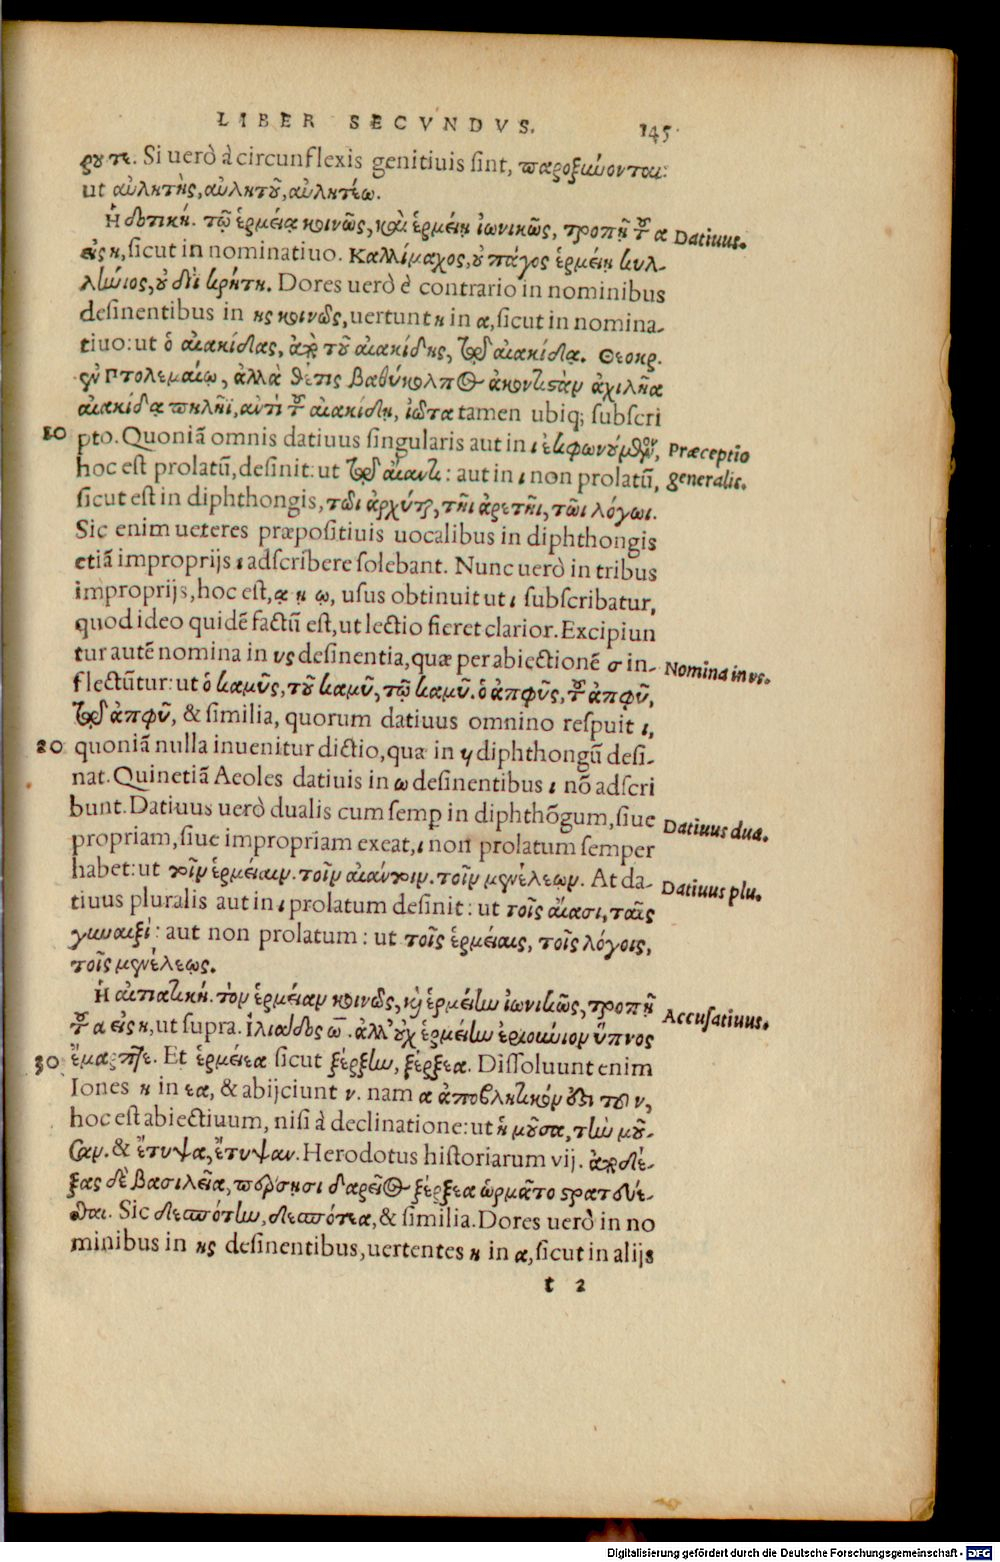 LIBER SECVNDVS. 145
ρουτε. Si uerò à circunflexis genitiuis sint, παροξύνονται:
ut αὐλητὴς, αὐλητοῦ, αὐλητέω.
Ἡ δοτική. τῷ ἑρμείᾳ κοινῶς, καὶ ἑρμείῃ ἰωνικῶς, τροπῇ τοῦ α Datiuus.
εἰς η, sicut in nominatiuo. Καλλίμαχος, οὐ πάγος ἑρμείῃ κυλ-
λήνιος, οὐδὲ κρήτη. Dores uerò è contrario in nominibus
desinentibus in ης κοινῶς, uertunt η in α, sicut in nomina-
tiuo: ut ὁ αἰακίδας, ἀπὸ τοῦ αἰακίδης, τῷ αἰακίδᾳ. Θεοκρ.
ἐν Πτολεμαίῳ, ἀλλὰ θέτις βαθύκολπος ἀκοντιστὰν ἀχιλῆα
αἰακίδᾳ πηλῆϊ, αὐτὶ τοῦ αἰακίδῃ, ἰῶτα tamen ubiq; subscri
10 pto. Quoniã omnis datiuus singularis aut in ι ἐκφωνούμενον, Præceptio
hoc est prolatũ, desinit: ut τῷ αἴαντι: aut in ι non prolatũ, generalis.
sicut est in diphthongis, τῶι ἀρχύτᾳ, τῆι ἀρετῆι, τῶι λόγωι.
Sic enim ueteres præpositiuis uocalibus in diphthongis
etiã improprijs ι adscribere solebant. Nunc uerò in tribus
improprijs, hoc est, ᾳ ῃ ῳ, usus obtinuit ut ι subscribatur,
quod ideo quidẽ factũ est, ut lectio fieret clarior. Excipiun
tur autẽ nomina in υς desinentia, quæ per abiectionẽ σ in- Nomina in υς.
flectũtur: ut ὁ καμῦς, τοῦ καμῦ, τῷ καμῦ. ὁ ἀπφῦς, τοῦ ἀπφῦ,
τῷ ἀπφῦ, & similia, quorum datiuus omnino respuit ι,
20 quoniã nulla inuenitur dictio, qua in υι diphthongũ desi-
nat. Quinetiã Aeoles datiuis in ω desinentibus ι nõ adscri
bunt. Datiuus uerò dualis cum semp in diphthõgum, siue Datiuus dua.
propriam, siue impropriam exeat, ι non prolatum semper
habet: ut τοῖν ἑρμείαιν. τοῖν αἰάντοιν. τοῖν μενέλεῳν. At da- Datiuus plu.
tiuus pluralis aut in ι prolatum desinit: ut τοῖς αἴασι, ταῖς
γυναιξί: aut non prolatum: ut τοῖς ἑρμείαις, τοῖς λόγοις,
τοῖς μενέλεῳς.
Ἡ αἰτιατική. τὸν ἑρμείαν κοινῶς, καὶ ἑρμείην ἰωνικῶς, τροπῇ Accusatiuus.
τοῦ α εἰς η, ut supra. Ἰλιάδος ω. ἀλλ' οὐχ ἑρμείην ἐριούνιον ὕπνος
30 ἔμαρπτε. Et ἑρμέεα sicut ξέρξην, ξέρξεα. Dissoluunt enim
Iones η in εα, & abijciunt ν. nam α ἀποβλητικόν ἐστι τοῦ ν,
hoc est abiectiuum, nisi à declinatione: ut ἡ μοῦσα, τὴν μοῦ-
σαν. & ἔτυψα, ἔτυψαν. Herodotus historiarum vij. ἀποδέ-
ξας δὲ βασιλῆα, πέρσησι δαρεῖος ξέρξεα ὡρμᾶτο στρατεύε-
σθαι. Sic δεσπότην, δεσπότεα, & similia. Dores uerò in no
minibus in ης desinentibus, uertentes η in α, sicut in alijs
t 2
Digitalisierung gefördert durch die Deutsche Forschungsgemeinschaft - DFG